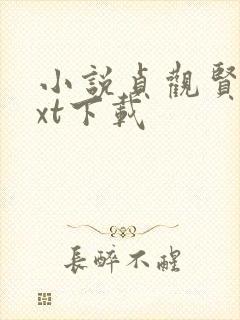 小說貞觀賢
xt下載
長醉不醒